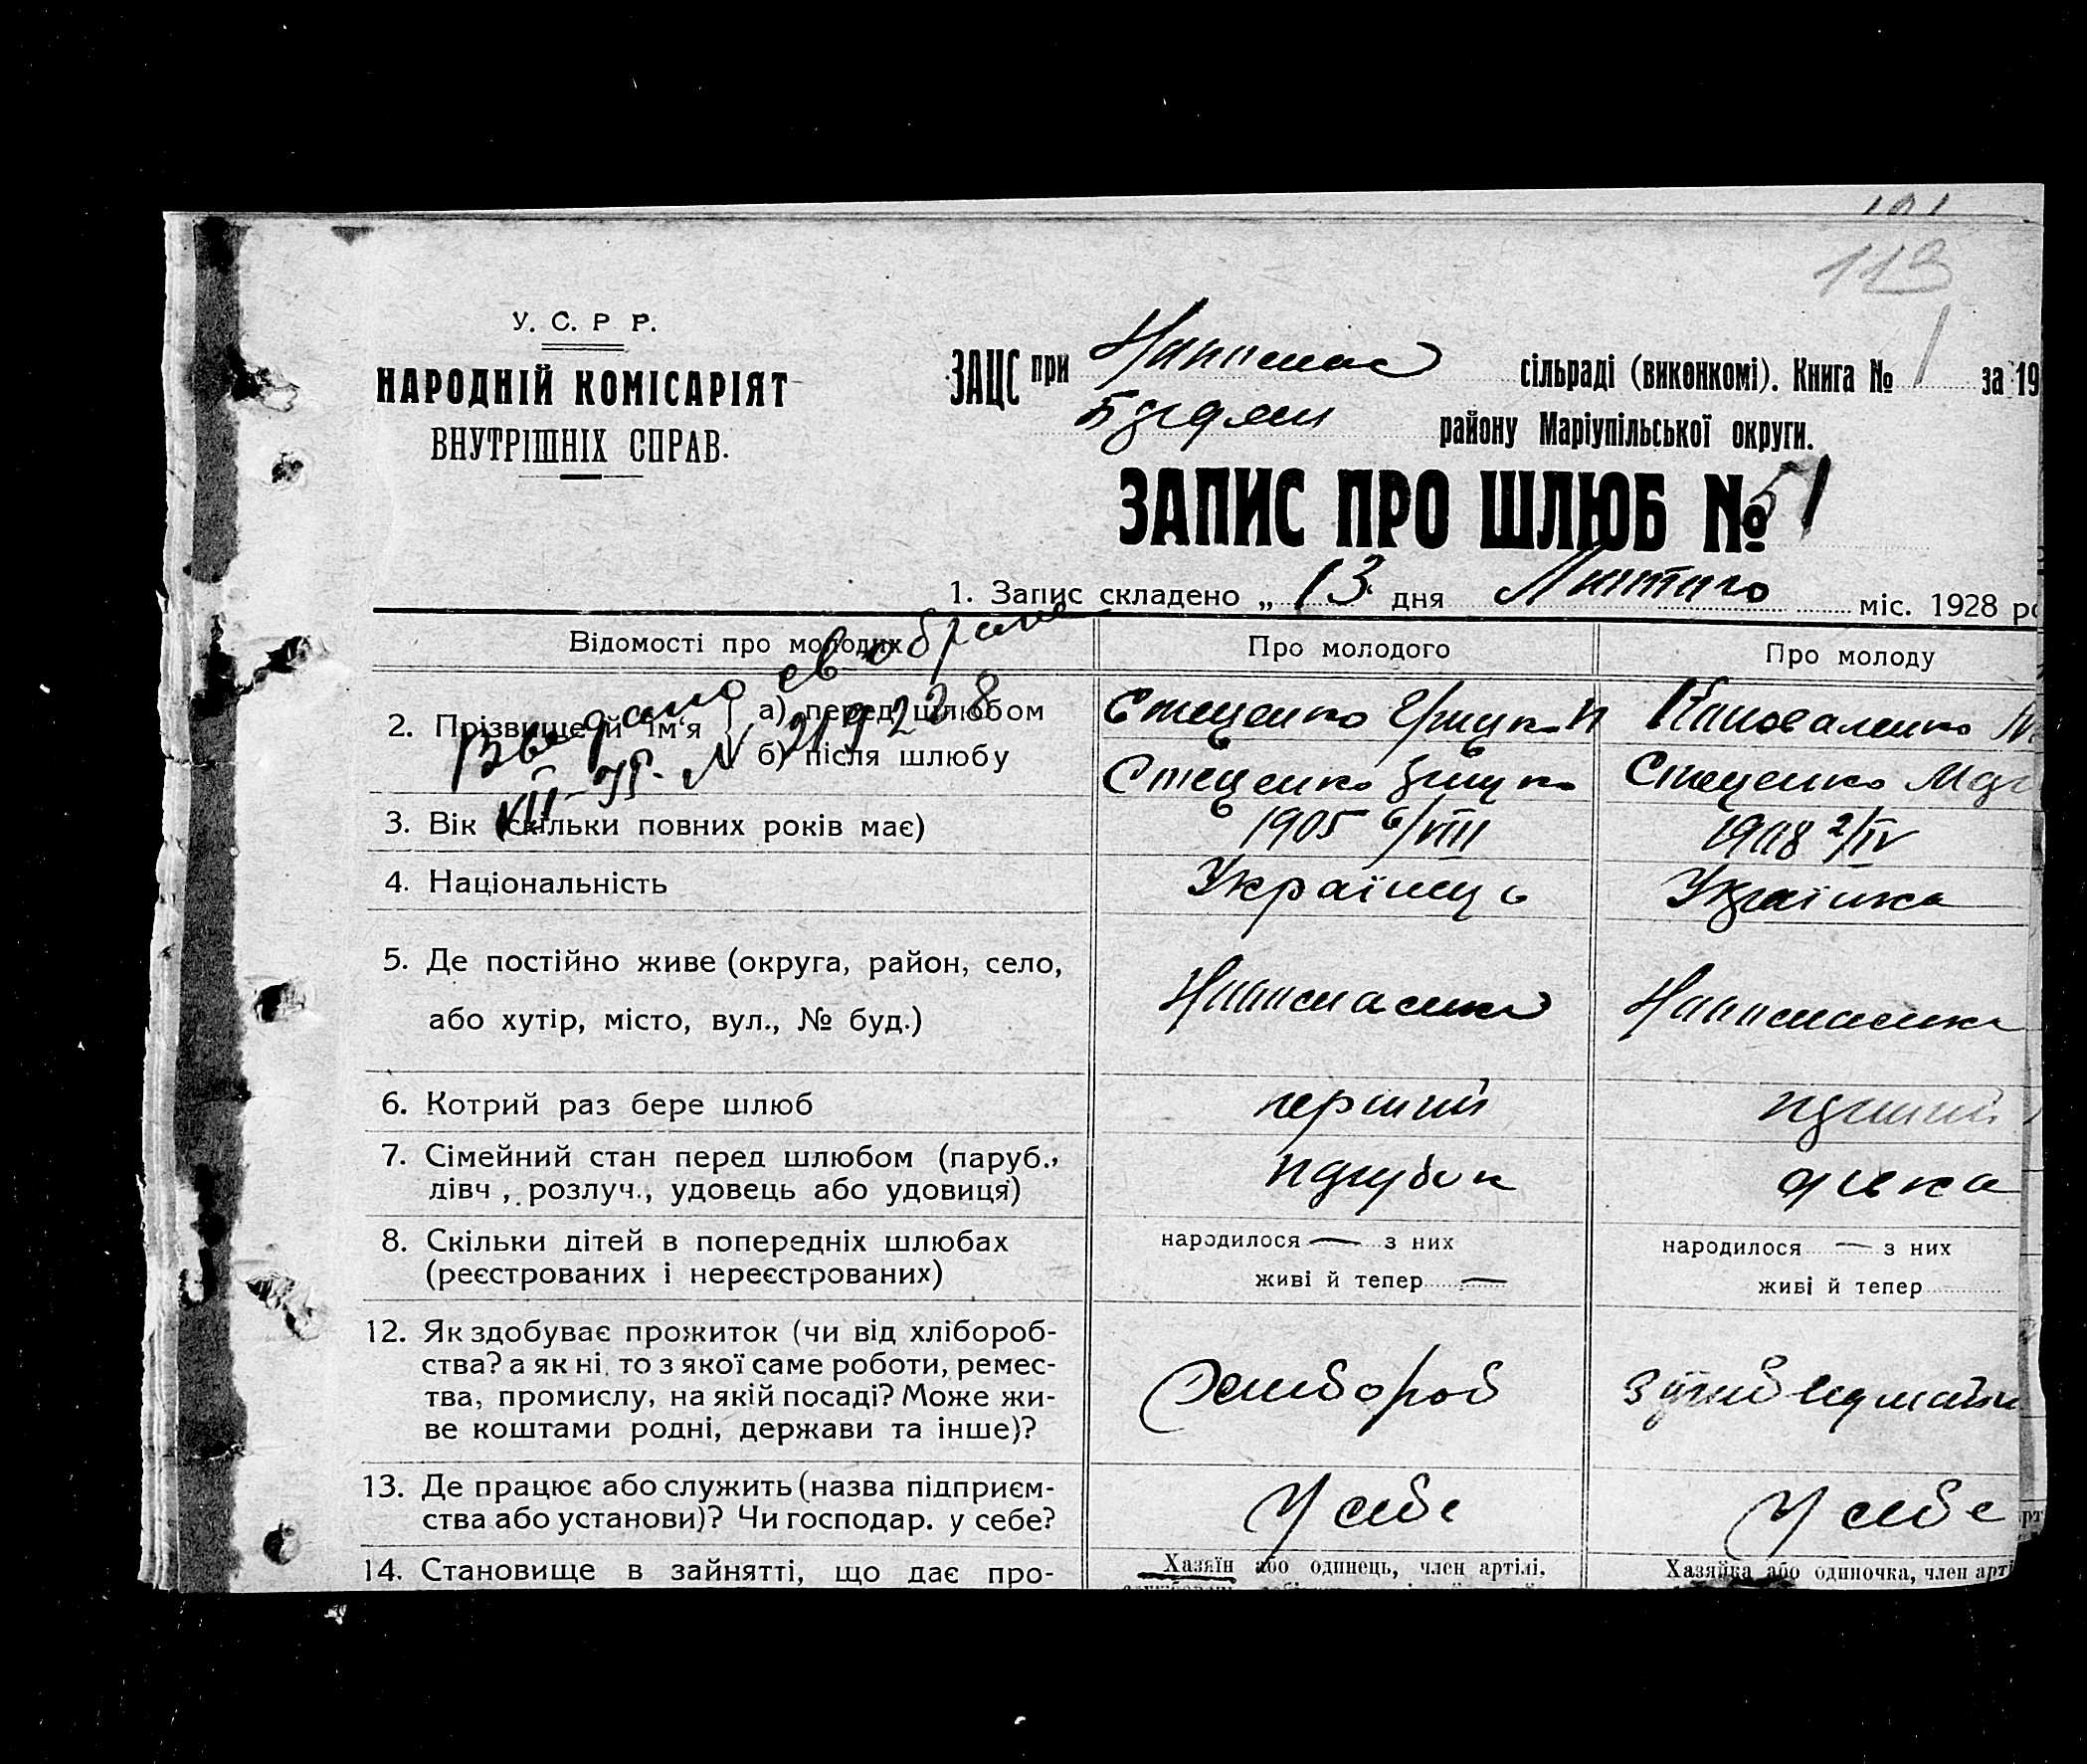 113
У. С. Р Р.
НАРОДНІЙ КОМІСАРІЯТ
ВНУТРІШНІХ СПРАВ.
ЗАЦС при сільраді (виконкомі). Книга № 1 за 19
району Маріупільської округи.
ЗАПИС ПРО ШЛЮБ № 51
1. Запис складено „ 13 дня Лютого міс. 1928
Відомості про молодих
Про молодого
Про молоду
2. Прізвище й ім'я
а) перед шлюбом
Стеценко Грицко
Коноваленко
б) після шлюбу
Стеценко Грицко
Стеценко
3. Вік (скільки повних років має)
1905 6/VIII
1908 2/IV
4. Національність
Українець
Українка
5. Де постійно живе (округа, район, село,
або хутір, місто, вул., № буд.)
6. Котрий раз бере шлюб
перший
перший
7. Сімейний стан перед шлюбом (паруб.,
дівч., розлуч., удовець або удовиця)
парубок
дівка
8. Скільки дітей в попередніх шлюбах
(реєстрованих і нереєстрованих)
народилося — з них
живі й тепер —
народилося — з них
живі й тепер
12. Як здобуває прожиток (чи від хлібороб-
ства? а як ні, то з якої саме роботи, ремес-
тва, промислу, на якій посаді? Може жи-
ве коштами родні, держави та інше)?
Хлибороб
13. Де працює або служить (назва підприєм-
ства або установи)? Чи господар. у себе?
У себе
У себе
14. Становище в зайнятті, що дає про-
Хазяїн або одинець, член артілі,
Хазяйка або одиночка, член арті